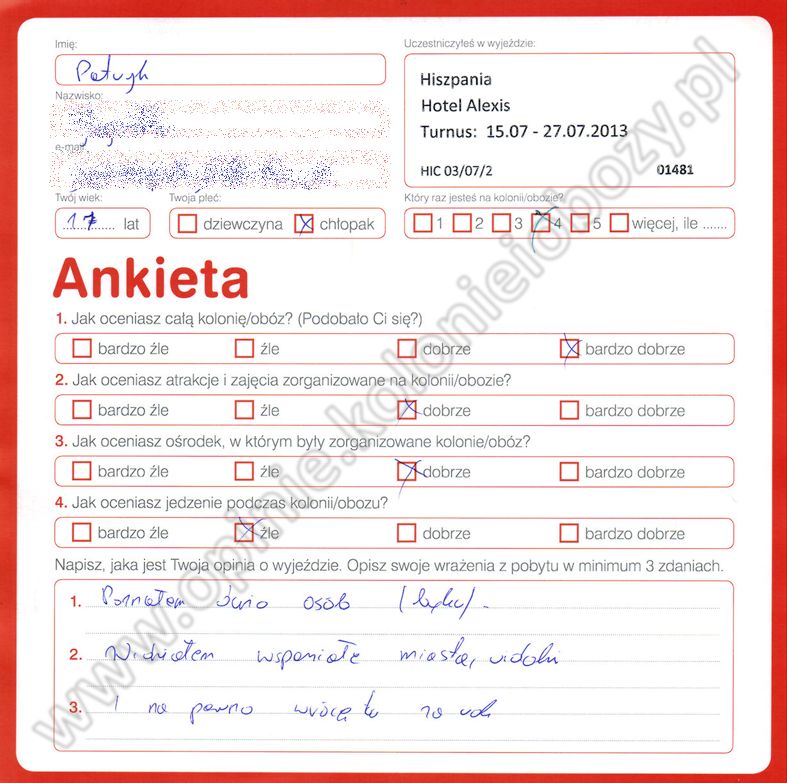 Imię:
Patryk
Nazwisko:
e-mail
Twój wiek:
17 lat
Twoja płeć:
dziewczyna chłopak
Uczestniczyłeś w wyjeździe:
Hiszpania
Hotel Alexis
Turnus: 15.07 - 27.07.2013
HIC 03/07/2 01481
Który raz jesteś na kolonii/obozie?
1 2 3 4 5 więcej, ile .......
Ankieta
1. Jak oceniasz całą kolonię/obóz? (Podobało Ci się?)
bardzo źle źle dobrze bardzo dobrze
2. Jak oceniasz atrakcje i zajęcia zorganizowane na kolonii/obozie?
bardzo źle źle dobrze bardzo dobrze
3. Jak oceniasz ośrodek, w którym były zorganizowane kolonie/obóz?
bardzo źle źle dobrze bardzo dobrze
4. Jak oceniasz jedzenie podczas kolonii/obozu?
bardzo źle źle dobrze bardzo dobrze
Napisz, jaka jest Twoja opinia o wyjeździe. Opisz swoje wrażenia z pobytu w minimum 3 zdaniach.
1. Poznałem dużo osób
2. Widziałem wspaniałe miasta, widoki
3. I na pewno wrócę tu za rok
www.opinie.kolonieiobozy.pl